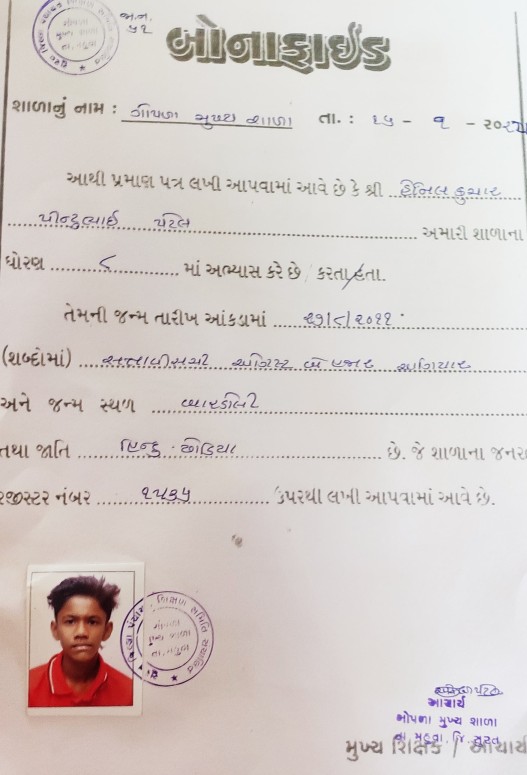 જા.નં.
૫૧
બોનાફાઈડ
શાળાનું નામ : ગોપળા મુખ્ય શાળા તા. : ૨૫ - ૧ -
આથી પ્રમાણ પત્ર લખી આપવામાં આવે છે કે શ્રી
પીન્ટુભાઈ પટેલ અમારી શાળાના
ધોરણ ૮ માં અભ્યાસ કરે છે / કરતા હતા.
તેમની જન્મ તારીખ આંકડામાં ૨૭/૮/૨૦૧૧
(શબ્દોમાં) સત્તાવીસમી ઓગસ્ટ બે હજાર અગિયાર
અને જન્મ સ્થળ બારડોલી
તથા જાતિ હિન્દુ - ધોડિયા છે. જે શાળાના
રજીસ્ટર નંબર ૧૫૩૫ ઉપરથી લખી આપવામાં આવે છે.
આચાર્ય
મુખ્ય શાળા
મુખ્ય શિક્ષક / આચાર્ય